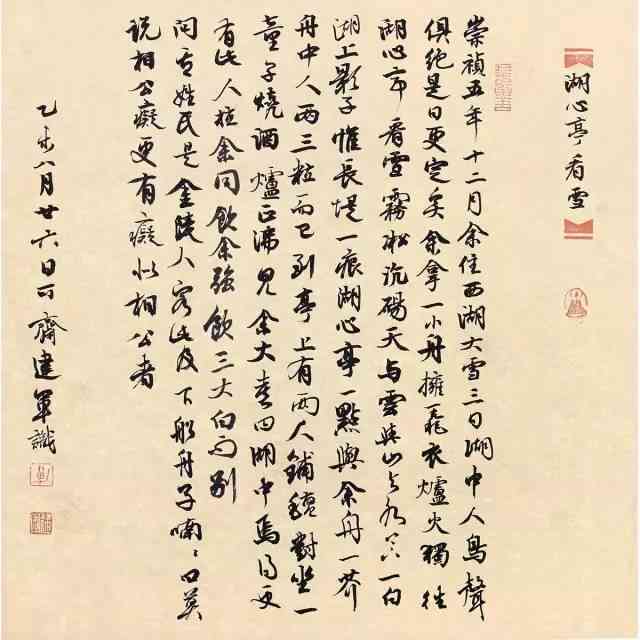 湖心亭看雪
崇禎五年十二月余住西湖大雪三日湖中人鳥聲
俱絕是日更定矣余拿一小舟擁毳衣爐火獨往
湖心亭看雪霧淞沆碭天与雲與山与水上下一白
湖上影子惟長堤一痕湖心亭一點與余舟一芥
舟中人兩三粒而已到亭上有兩人鋪氈對坐一
童子燒酒爐正沸見余大喜曰湖中焉得更
有此人拉余同飲余強飲三大白而別
問其姓氏是金陵人客此及下船舟子喃〻曰莫
說相公癡更有癡似相公者
乙未八月廿六日可齋建軍識